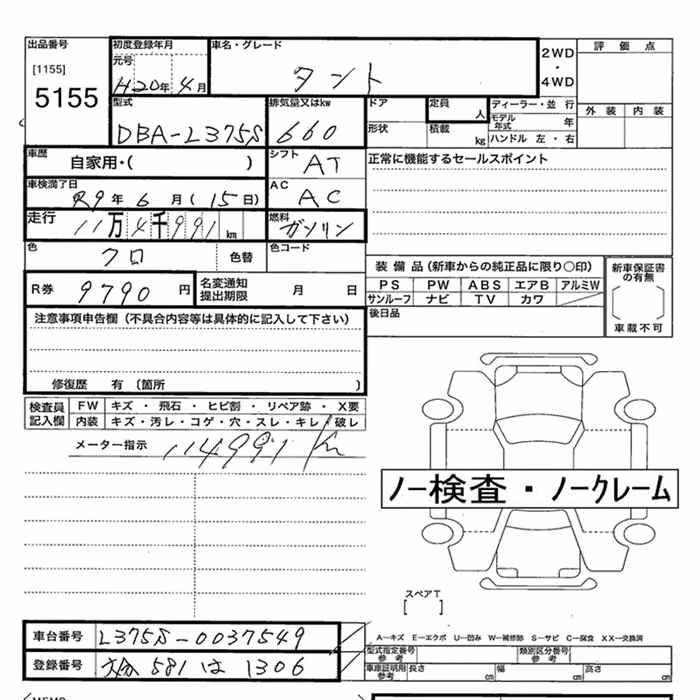 出品番号
[1155]
5155
初度登録年月
元号
H20年4月
車名・グレード
タント
2WD
・
4WD
評価点
外装 内装
型式
DBA-L375S
排気量又はkw
660
ドア
形状
定員
人
積載
kg
ディーラー・並行
モデル年式 年
ハンドル 左・右
車歴
自家用・( )
シフト
AT
正常に機能するセールスポイント
車検満了日
R9年6月(15日)
AC
AC
走行
11万4千991km
燃料
ガソリン
色
クロ
色替
色コード
R券
9790円
名変通知
提出期限
月 日
装備品(新車からの純正品に限り○印)
PS PW ABS エアB アルミW
サンルーフ ナビ TV カワ
新車保証書
の有無
車載不可
後日品
注意事項申告欄(不具合内容等は具体的に記入して下さい)
修復歴 有 〔箇所 〕
検査員
記入欄
FW キズ・飛石・ヒビ割・リペア跡・X要
内装 キズ・汚レ・コゲ・穴・スレ・キレ/破レ
メーター指示
114991km
ノー検査・ノークレーム
スペアT
[ ]
車台番号
L375S-0037549
登録番号
大分 581 は 1306
A―キズ E―エクボ U―凹み W―補修跡 S―サビ C―腐食 XX―交換済
型式指定番号
参考
類別区分番号
参考
車庫証明用
参考
長さ cm
幅 cm
高さ cm
MEMO